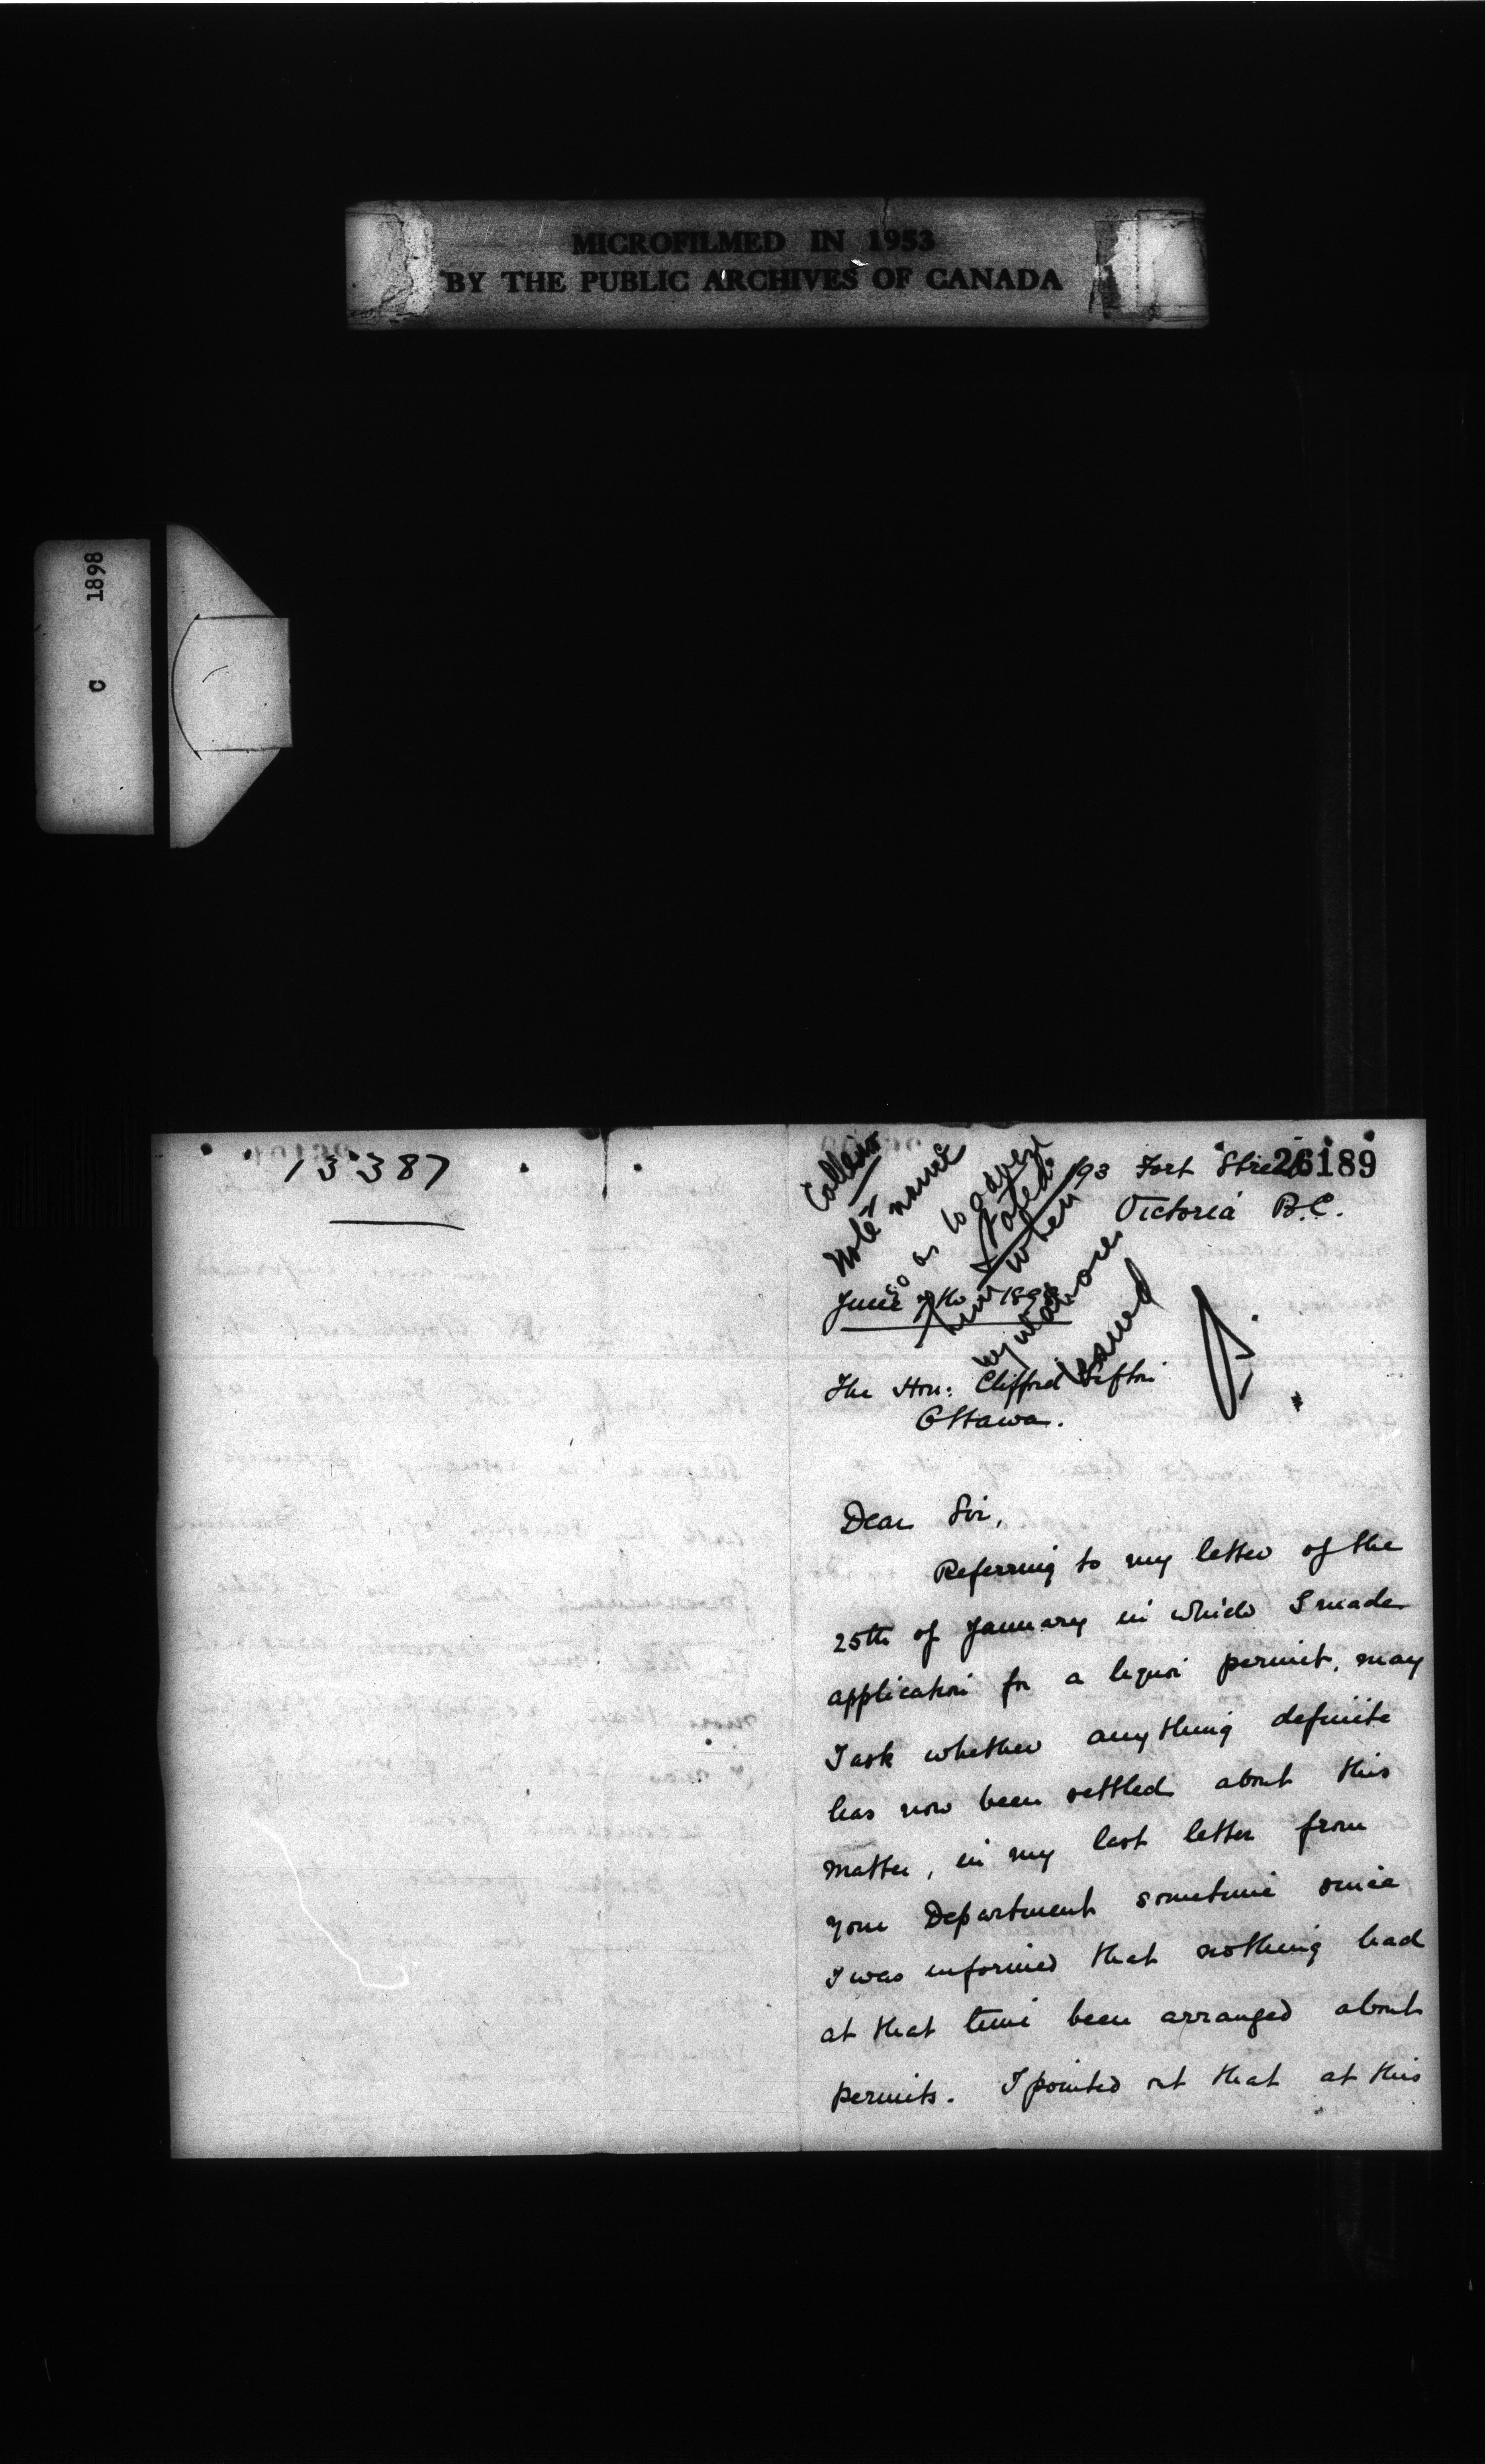 MICROFILMED IN 1953
BY THE PUBLIC ARCHIVES OF CANADA
C 1898
13387
26189
93 Fort Street
Victoria B.C.
Note name
so as to
when
issued
June 1898
The Hon: Clifford Sifton
Ottawa.
Dear Sir,
Referring to my letter of the
25th of January in which I made
application for a liquor permit, may
I ask whether anything definite
has now been settled about this
matter, in my last letter from
your Department sometime since
I was informed that nothing had
at that time been arranged about
permits. I pointed out that at this